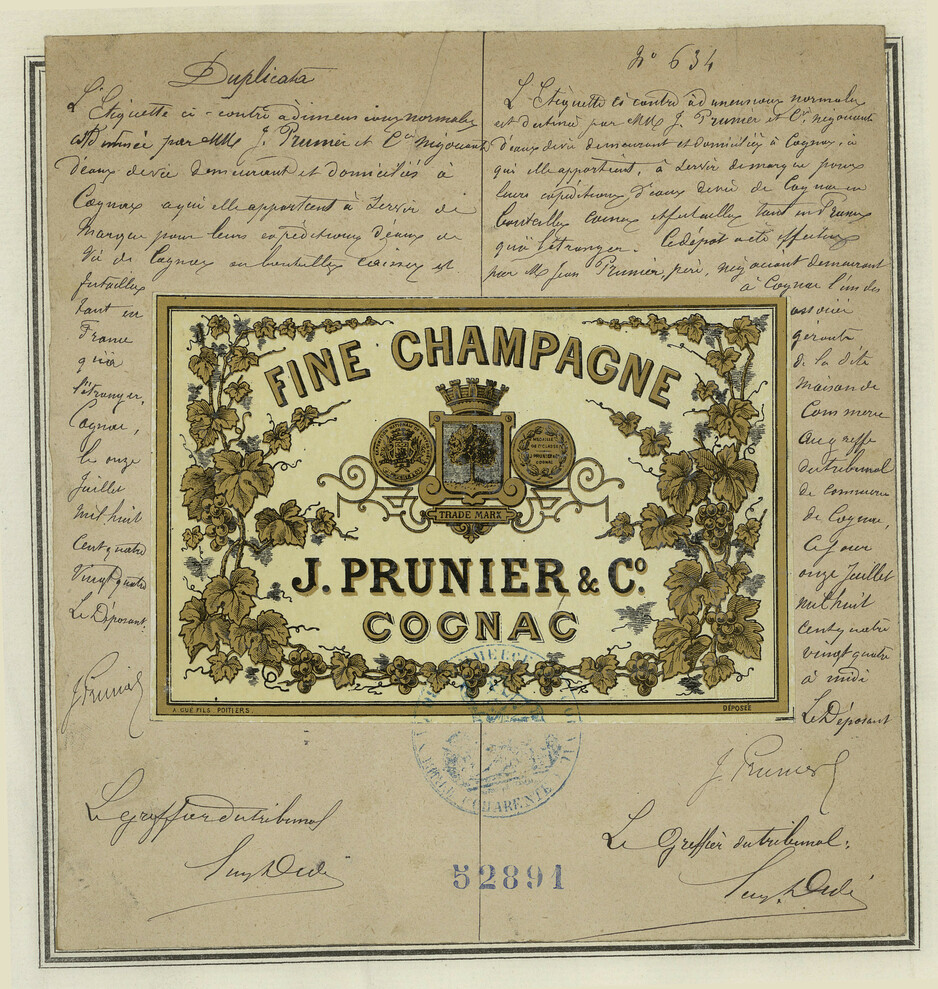 Duplicata
L'Etiquette ci-contre à dimensions normales
est destinée par MM J. Prunier et Cie négociants
d'eaux de vie demeurant et domiciliés à
Cognac à qui elle appartient à servir de
marque pour leurs expéditions d'eaux de
vie de Cognac en bouteilles caisses et
futailles
tant en
France
qu'à
l'étranger.
Cognac,
le onze
Juillet
mil huit
cent quatre
vingt quatre
Le Déposant
J. Prunier
Le greffier du tribunal
No 634
L'Etiquette ci contre à dimensions normales
est destinée par MM J. Prunier et Cie négociants
d'eaux de vie demeurant et domiciliés à Cognac, à
qui elle appartient, à servir de marque pour
leurs expéditions d'eaux de vie de Cognac en
bouteilles caisses et futailles tant en France
qu'à l'étranger. Le dépôt a été effectué
par M Jean Prunier, père, négociant demeurant
à Cognac l'un des
associés
gérants
de la dite
maison de
Commerce
au greffe
du tribunal
de commerce
de Cognac,
ce jour
onze Juillet
mil huit
cent quatre
vingt quatre
à midi
Le Déposant
J. Prunier
Le Greffier du tribunal.
FINE CHAMPAGNE
TRADE MARK
J. PRUNIER & Co.
COGNAC
A. GUÉ FILS POITIERS.
DÉPOSÉE
52891